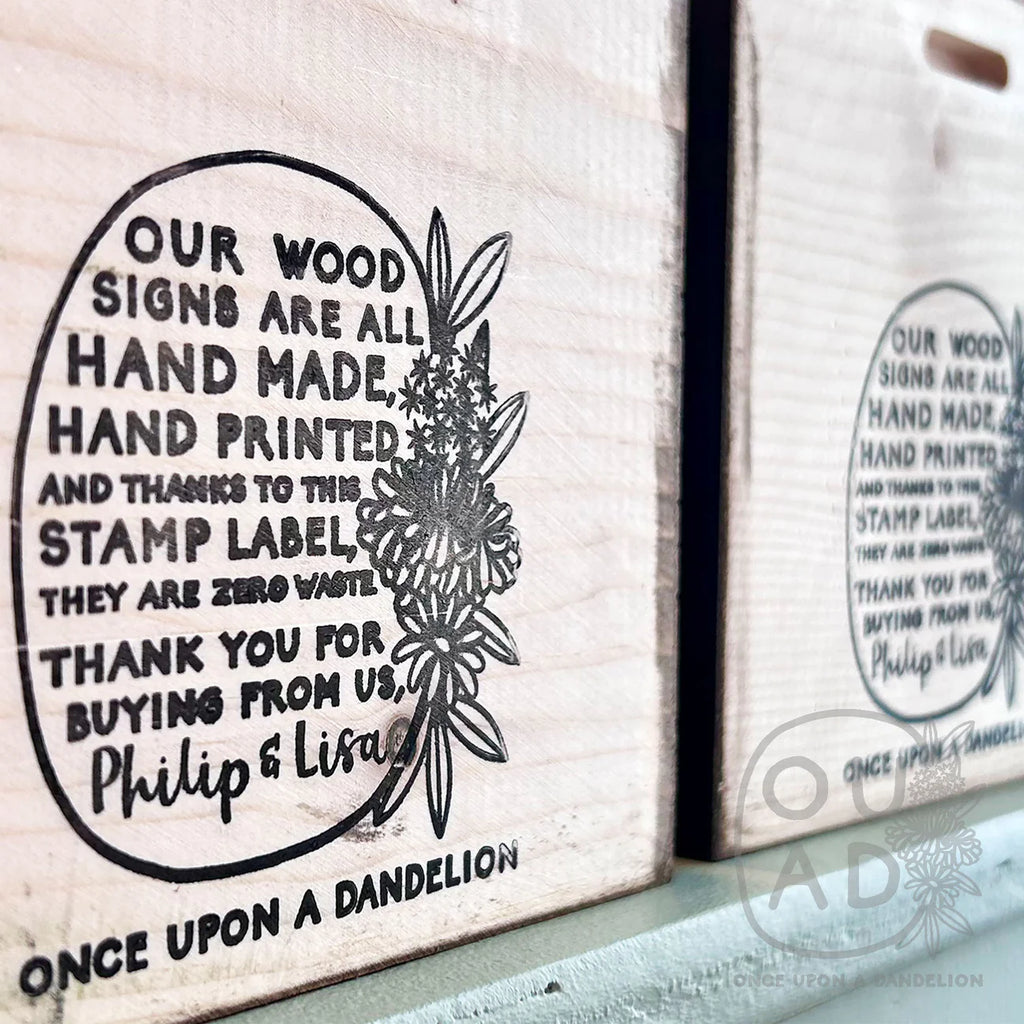 OUR WOOD
SIGNS ARE ALL
HAND MADE,
HAND PRINTED
AND THANKS TO THIS
STAMP LABEL,
THEY ARE ZERO WASTE
THANK YOU FOR
BUYING FROM US,
Philip & Lisa
ONCE UPON A DANDELION
OUR WOOD
SIGNS ARE ALL
HAND MADE,
HAND PRINTED
AND THANKS TO THIS
STAMP LABEL,
THEY ARE ZERO WASTE
THANK YOU FOR
BUYING FROM US,
Philip & Lisa
ONCE UPON A DANDELI
OU
AD
ONCE UPON A DANDELION